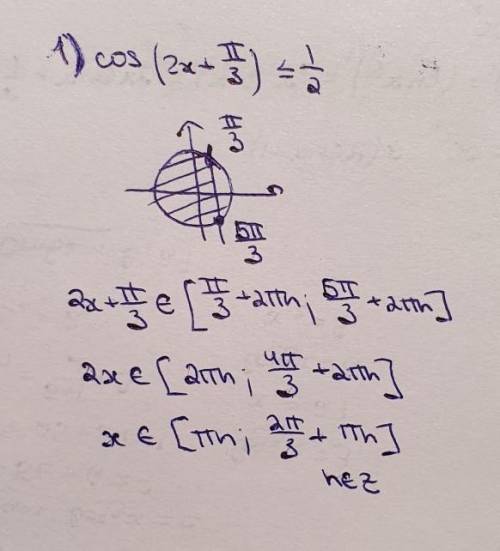 1) cos (2x + π/3) ≤ 1/2
π/3
5π/3
2x + π/3 ∈ [π/3 + 2πn; 5π/3 + 2πn]
2x ∈ [2πn; 4π/3 + 2πn]
x ∈ [πn; 2π/3 + πn]
n∈z